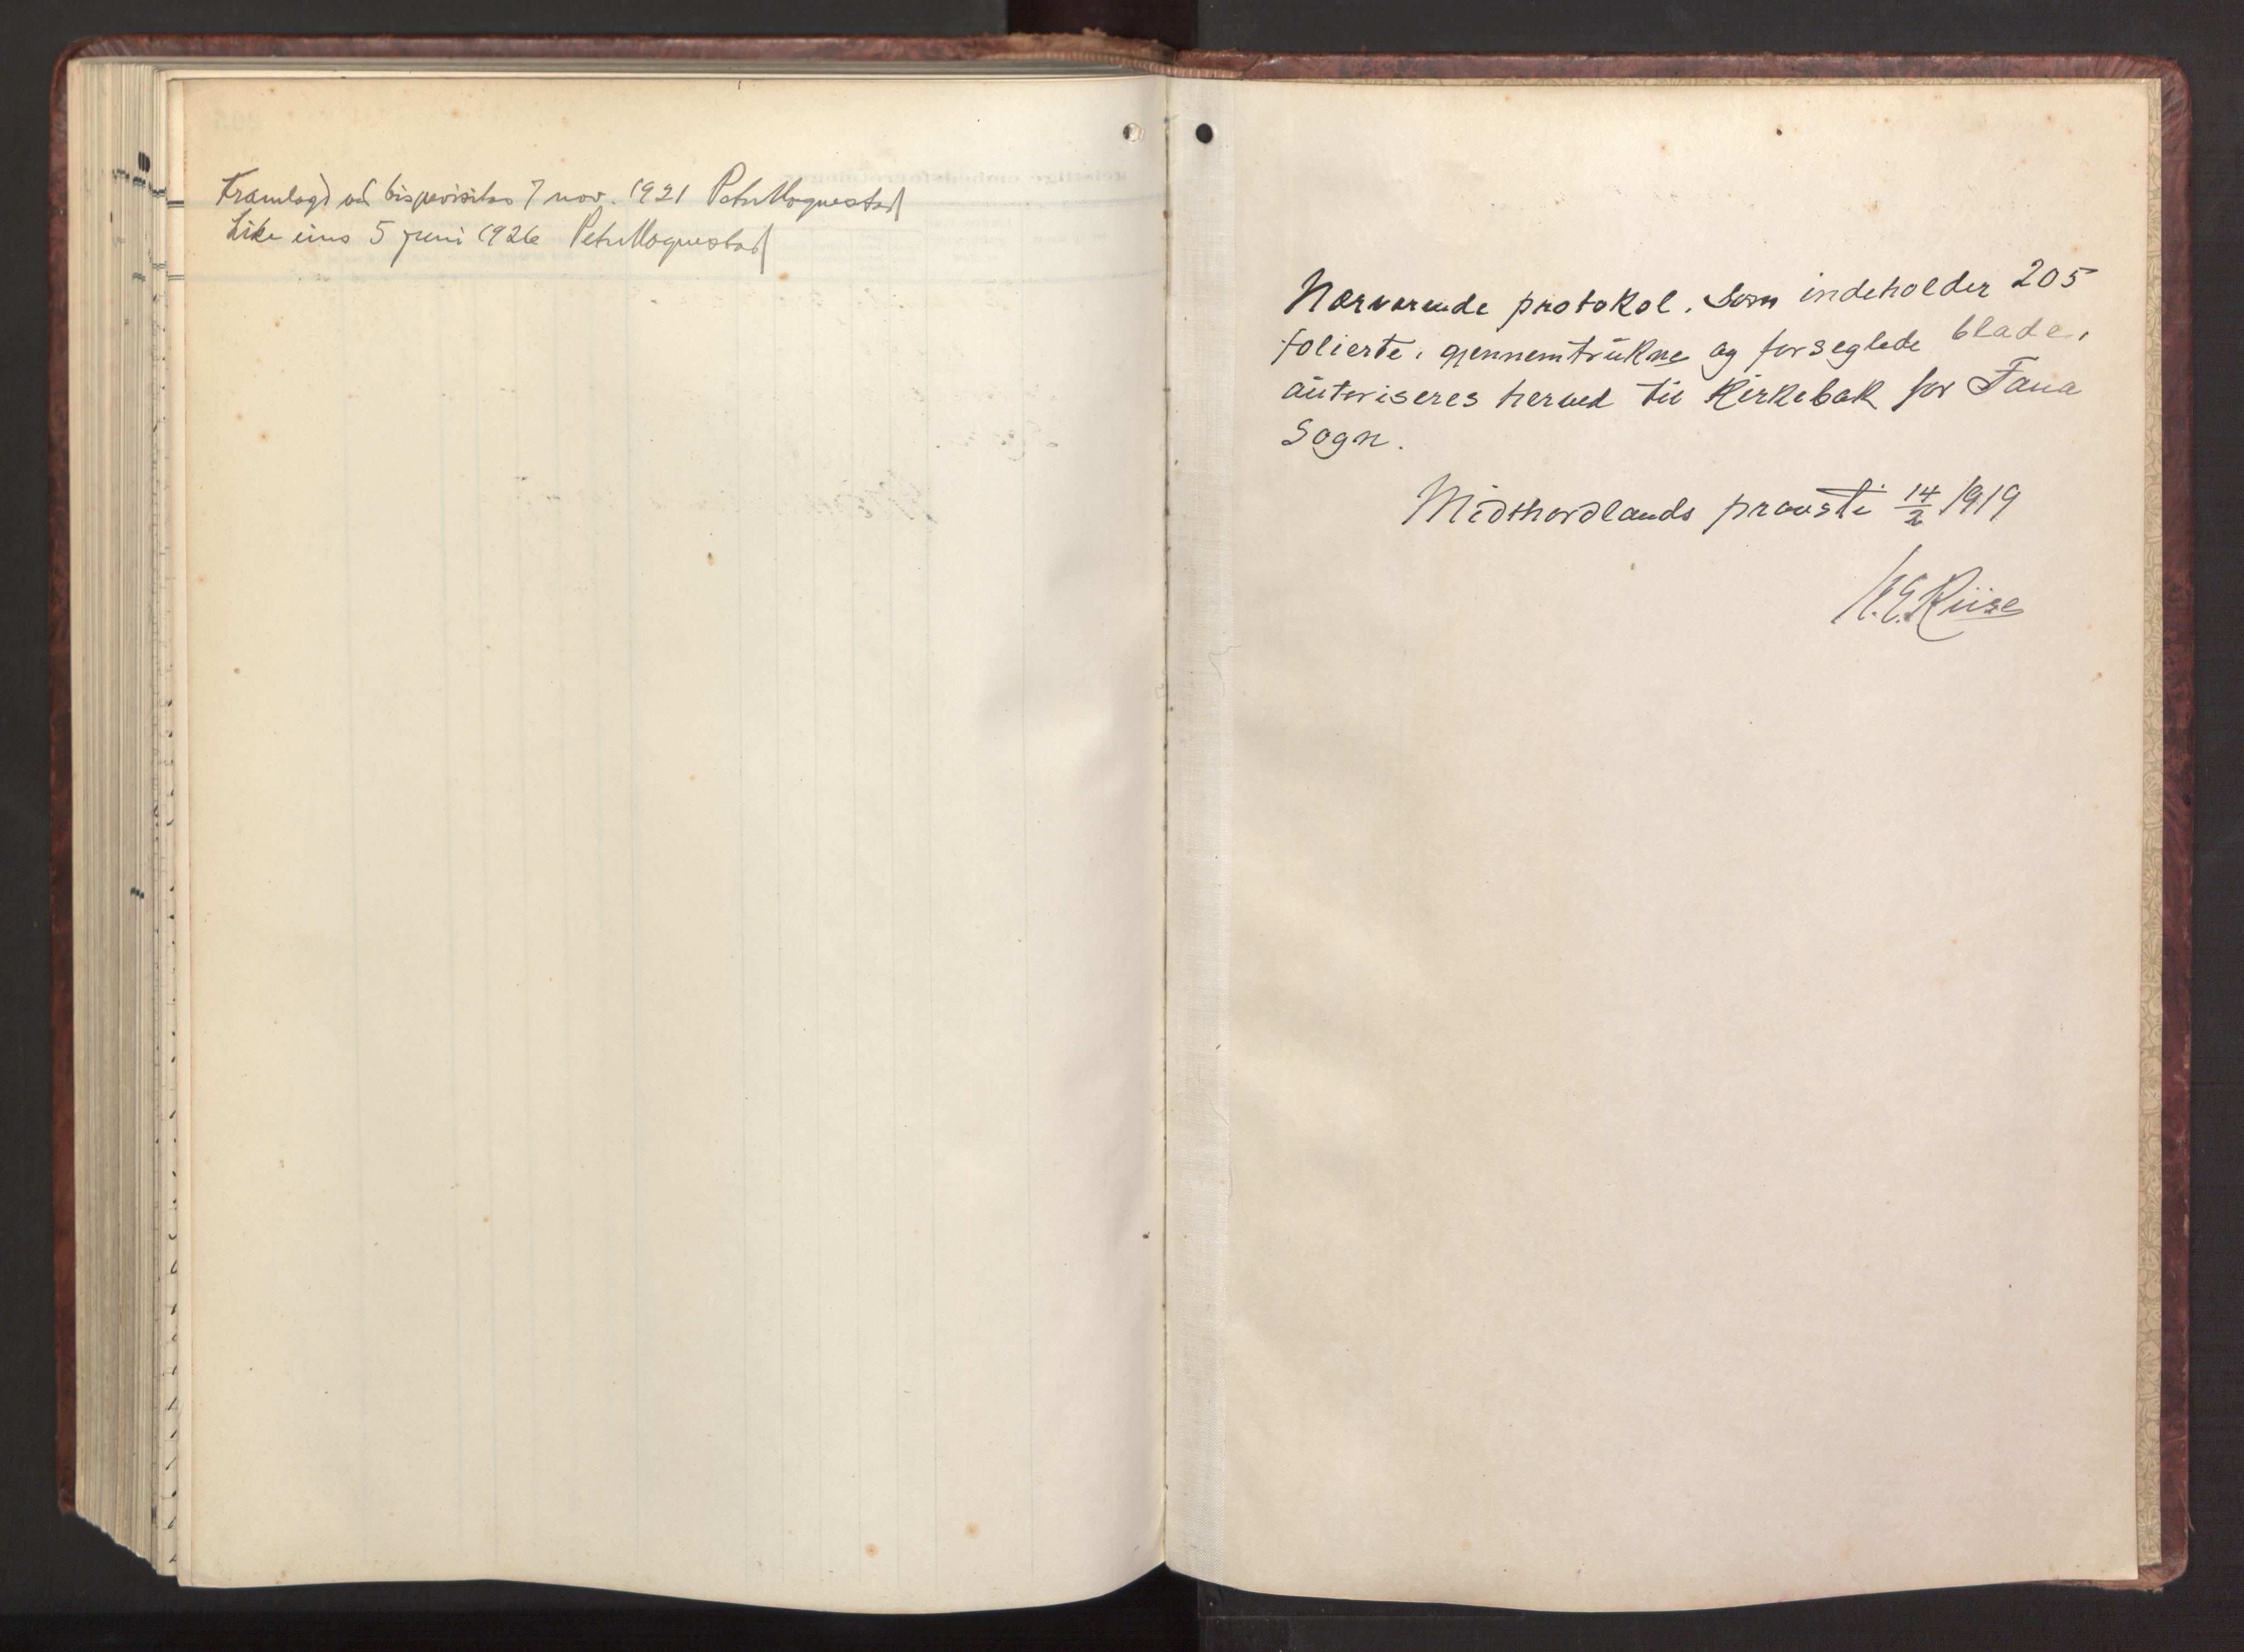 Framlagd ved bispevisitas 7 nov. 1921 Peter Hognestad
Like eins 5 juni 1926 Peter Hognestad
Nærværende protokol, som indeholder 205
folierte, gjennemtrukne og forseglede blade,
autoriseres herved til kirkebok for Fana
Sogn.
Midthordlands prousti 14/2 1919
Riise